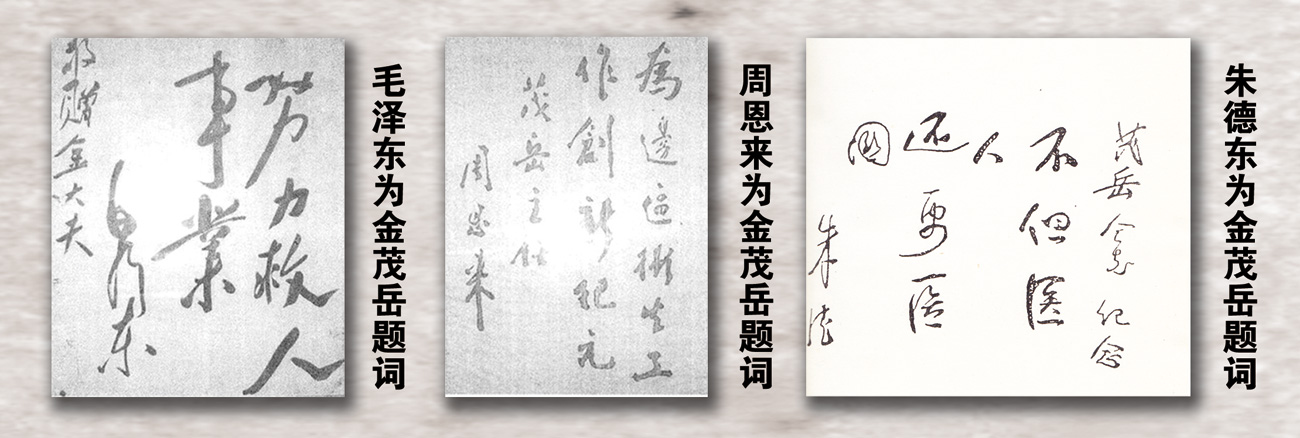 努力救人
事業
毛泽东
敬赠金大夫
毛泽东为金茂岳题词
為邊區衛生工
作創新紀元
茂岳主任
周恩来
周恩来为金茂岳题词
茂岳仝志纪念
不但医
人
还要医
國
朱德
朱德东为金茂岳题词